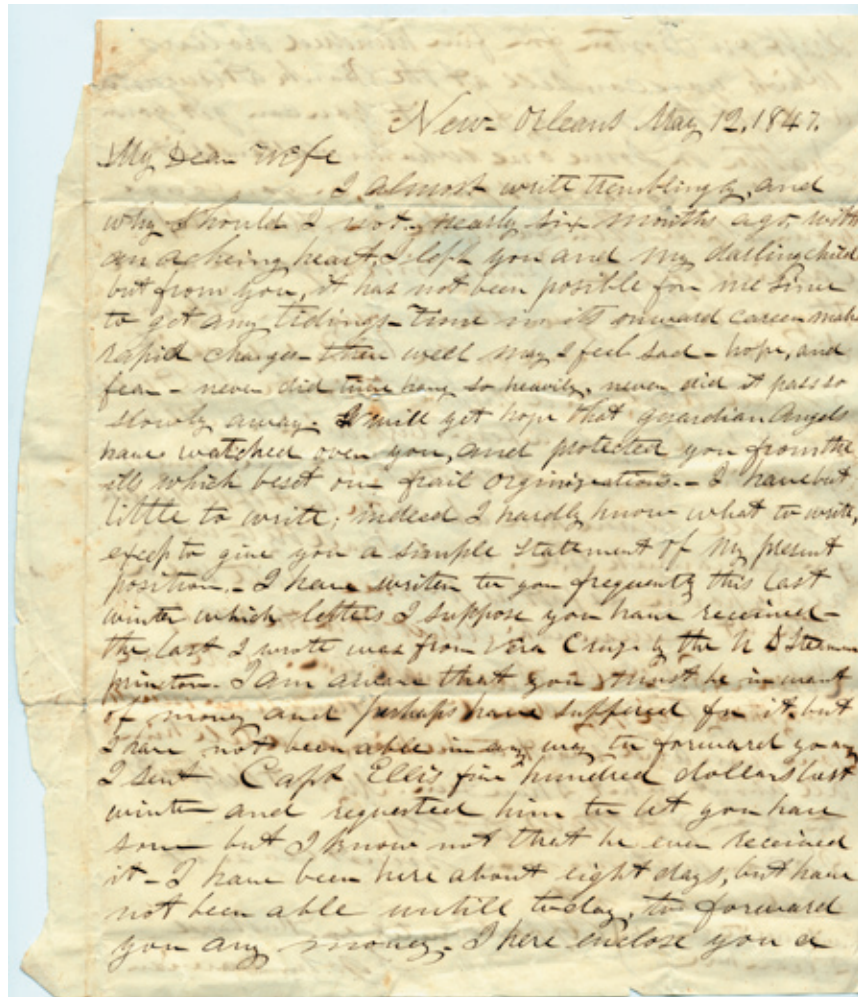 New Orleans May 12, 1847.
My Dear Wife
I almost write tremblingly, and
why should I not, nearly six months ago, with
an acheing heart, I left you and my darling child
but from you, it has not been posible for me since
to get any tidings - Time in its onward career makes
rapid changes - then well may I feel sad - hope, and
fear - never did time hang so heavily, never did it pass so
slowly away. I will yet hope that guardian Angels
have watched over you, and protected you from the
ills which beset our frail - I have but
little to write; indeed I hardly know what to write,
except to give you a simple statement of my present
position. - I have writen to you frequently this last
winter which letters I suppose you have received -
the last I wrote was from Vera Cruz by the U S Steamer
Princeton. I am aware that you must be in want
of money and perhaps have suffered for it, but
I have not been able in any way to forward you any
I sent Capt Ellis five hundred dollars last
winter and requested him to let you have
some but I know not that he ever received
it - I have been here about eight days, but have
not been able untill today, to forward
you any money. I here enclose you a